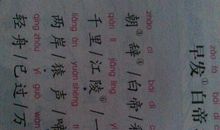 早发①白帝
zhāo cí bái dì
朝辞/白帝/
千里/江陵/一
liǎng àn yuán shēng
两岸/猿声/啼
qīng zhōu yǐ guò wàn
轻舟/已过/万